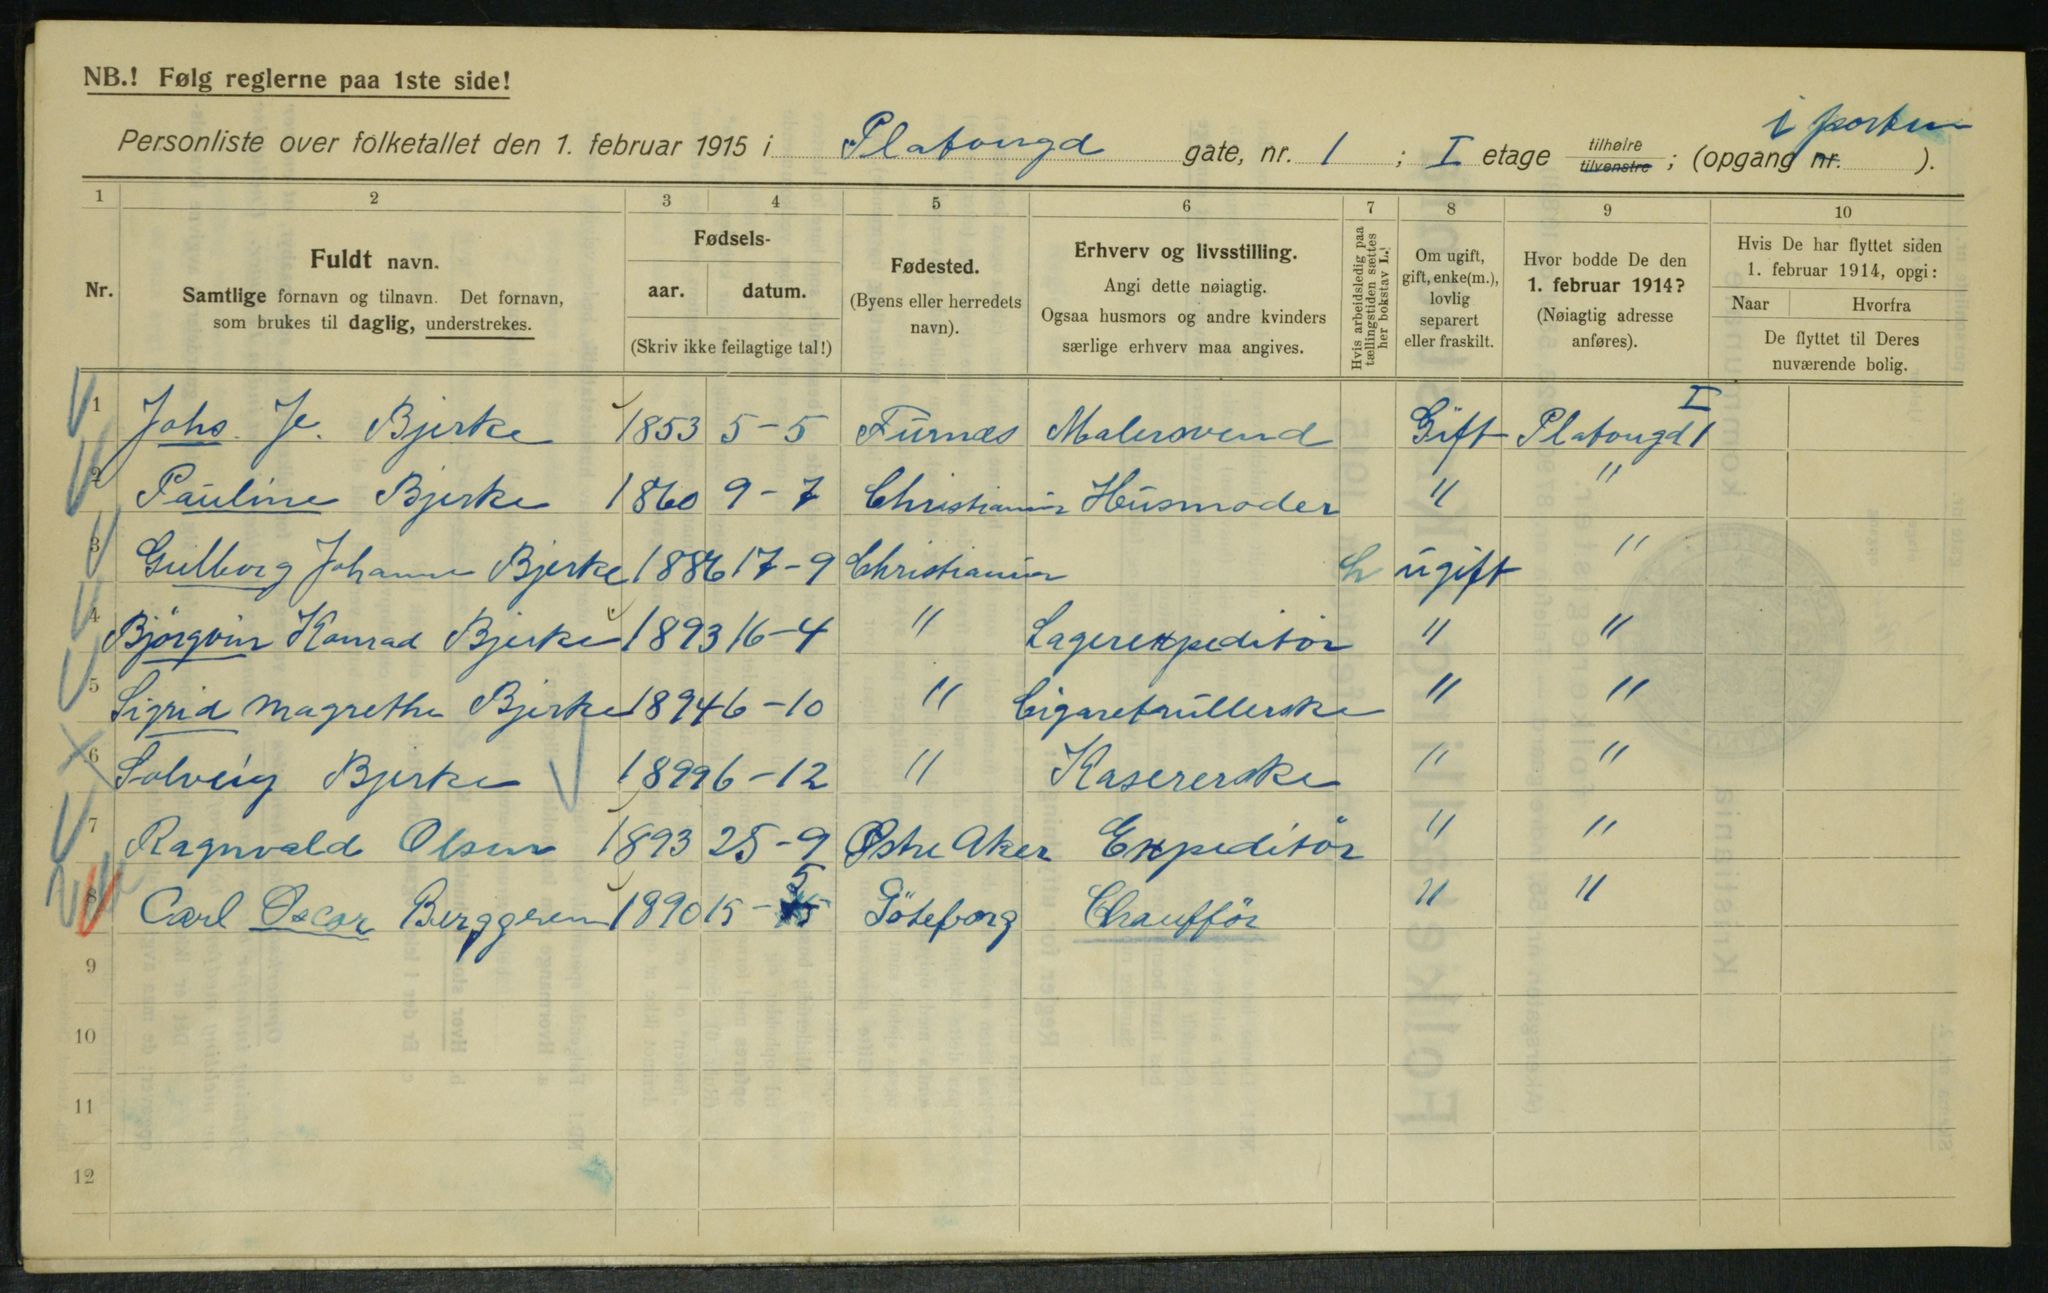 NB.! Følg reglerne paa 1ste side!
i porten
Personliste over folketallet den 1. februar 1915 i Platougd gate, nr. 1 ; I etage tilhøire tilvenstre ; (opgang nr. ).
1 2 3 4 5 6 7 8 9 10
Nr.
Fuldt navn.
Samtlige fornavn og tilnavn. Det fornavn,
som brukes til daglig, understrekes.
Fødsels-
aar. datum.
(Skriv ikke feilagtige tal!)
Fødested.
(Byens eller herredets
navn).
Erhverv og livsstilling.
Angi dette nøiagtig.
Ogsaa husmors og andre kvinders
særlige erhverv maa angives.
Hvis arbeidsledig paa
tællingstiden sættes
her bokstav L.
Om ugift,
gift, enke(m.),
lovlig
separert
eller fraskilt.
Hvor bodde De den
1. februar 1914?
(Nøiagtig adresse
anføres).
Hvis De har flyttet siden
1. februar 1914, opgi:
Naar Hvorfra
De flyttet til Deres
nuværende bolig.
1 Johs. Je. Bjerke 1853 5-5 Furnæs Malersvend Gift Platougd 1 I
2 Pauline Bjerke 1860 9-7 Christiania Husmoder " "
3 Gulborg Johanne Bjerke 1886 17-9 Christiania L ugift "
4 Bjørgvin Konrad Bjerke 1893 16-4 " Lagerexpeditør " "
5 Sigrid Magrethe Bjerke 1894 6-10 " Cigaretrullerske " "
6 Solveig Bjerke 1899 6-12 " Kasererske " "
7 Ragnvald Olsen 1893 25-9 Østre Aker Expeditör " "
8 Carl Oscar Berggren 1890 15-5 Göteborg Chaufför " "
9
10
11
12